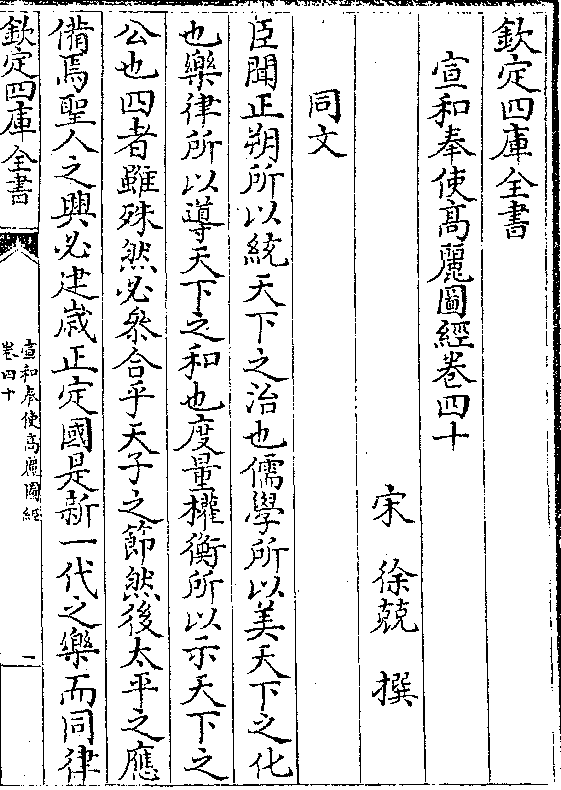 欽定四庫全書
宣和奉使髙麗圖經卷四十
宋 徐兢 撰
同文
臣聞正朔所以統天下之治也儒學所以美天下之化
也樂律所以導天下之和也度量權衡所以示天下之
公也四者雖殊然必叅合乎天子之節然後太平之應
備焉聖人之興必建歳正定國是新一代之樂而同律
欽定四庫全書
宣和奉使高麗圖經
卷四十
一